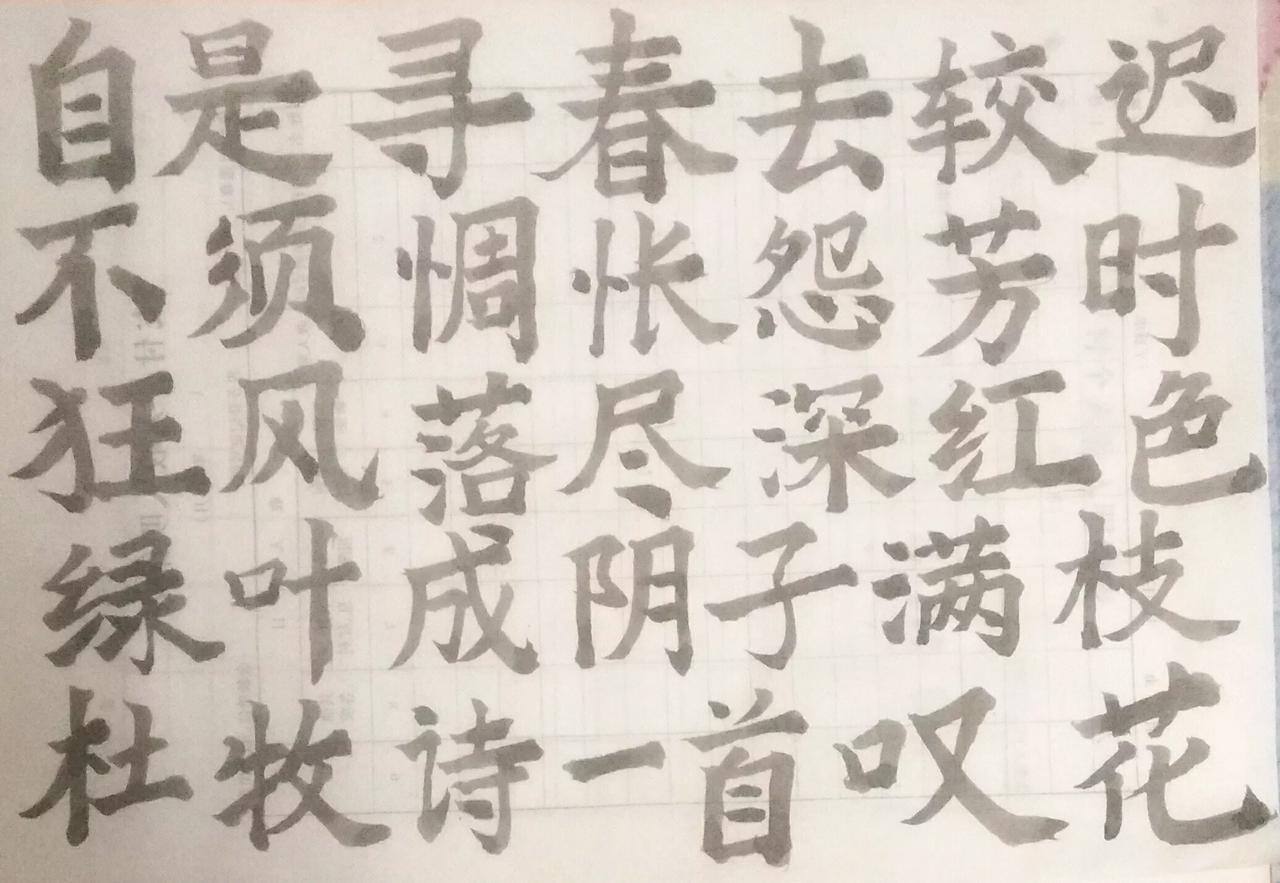 自是寻春去较迟
不须惆怅怨芳时
狂风落尽深红色
绿叶成阴子满枝
杜牧诗一首叹花